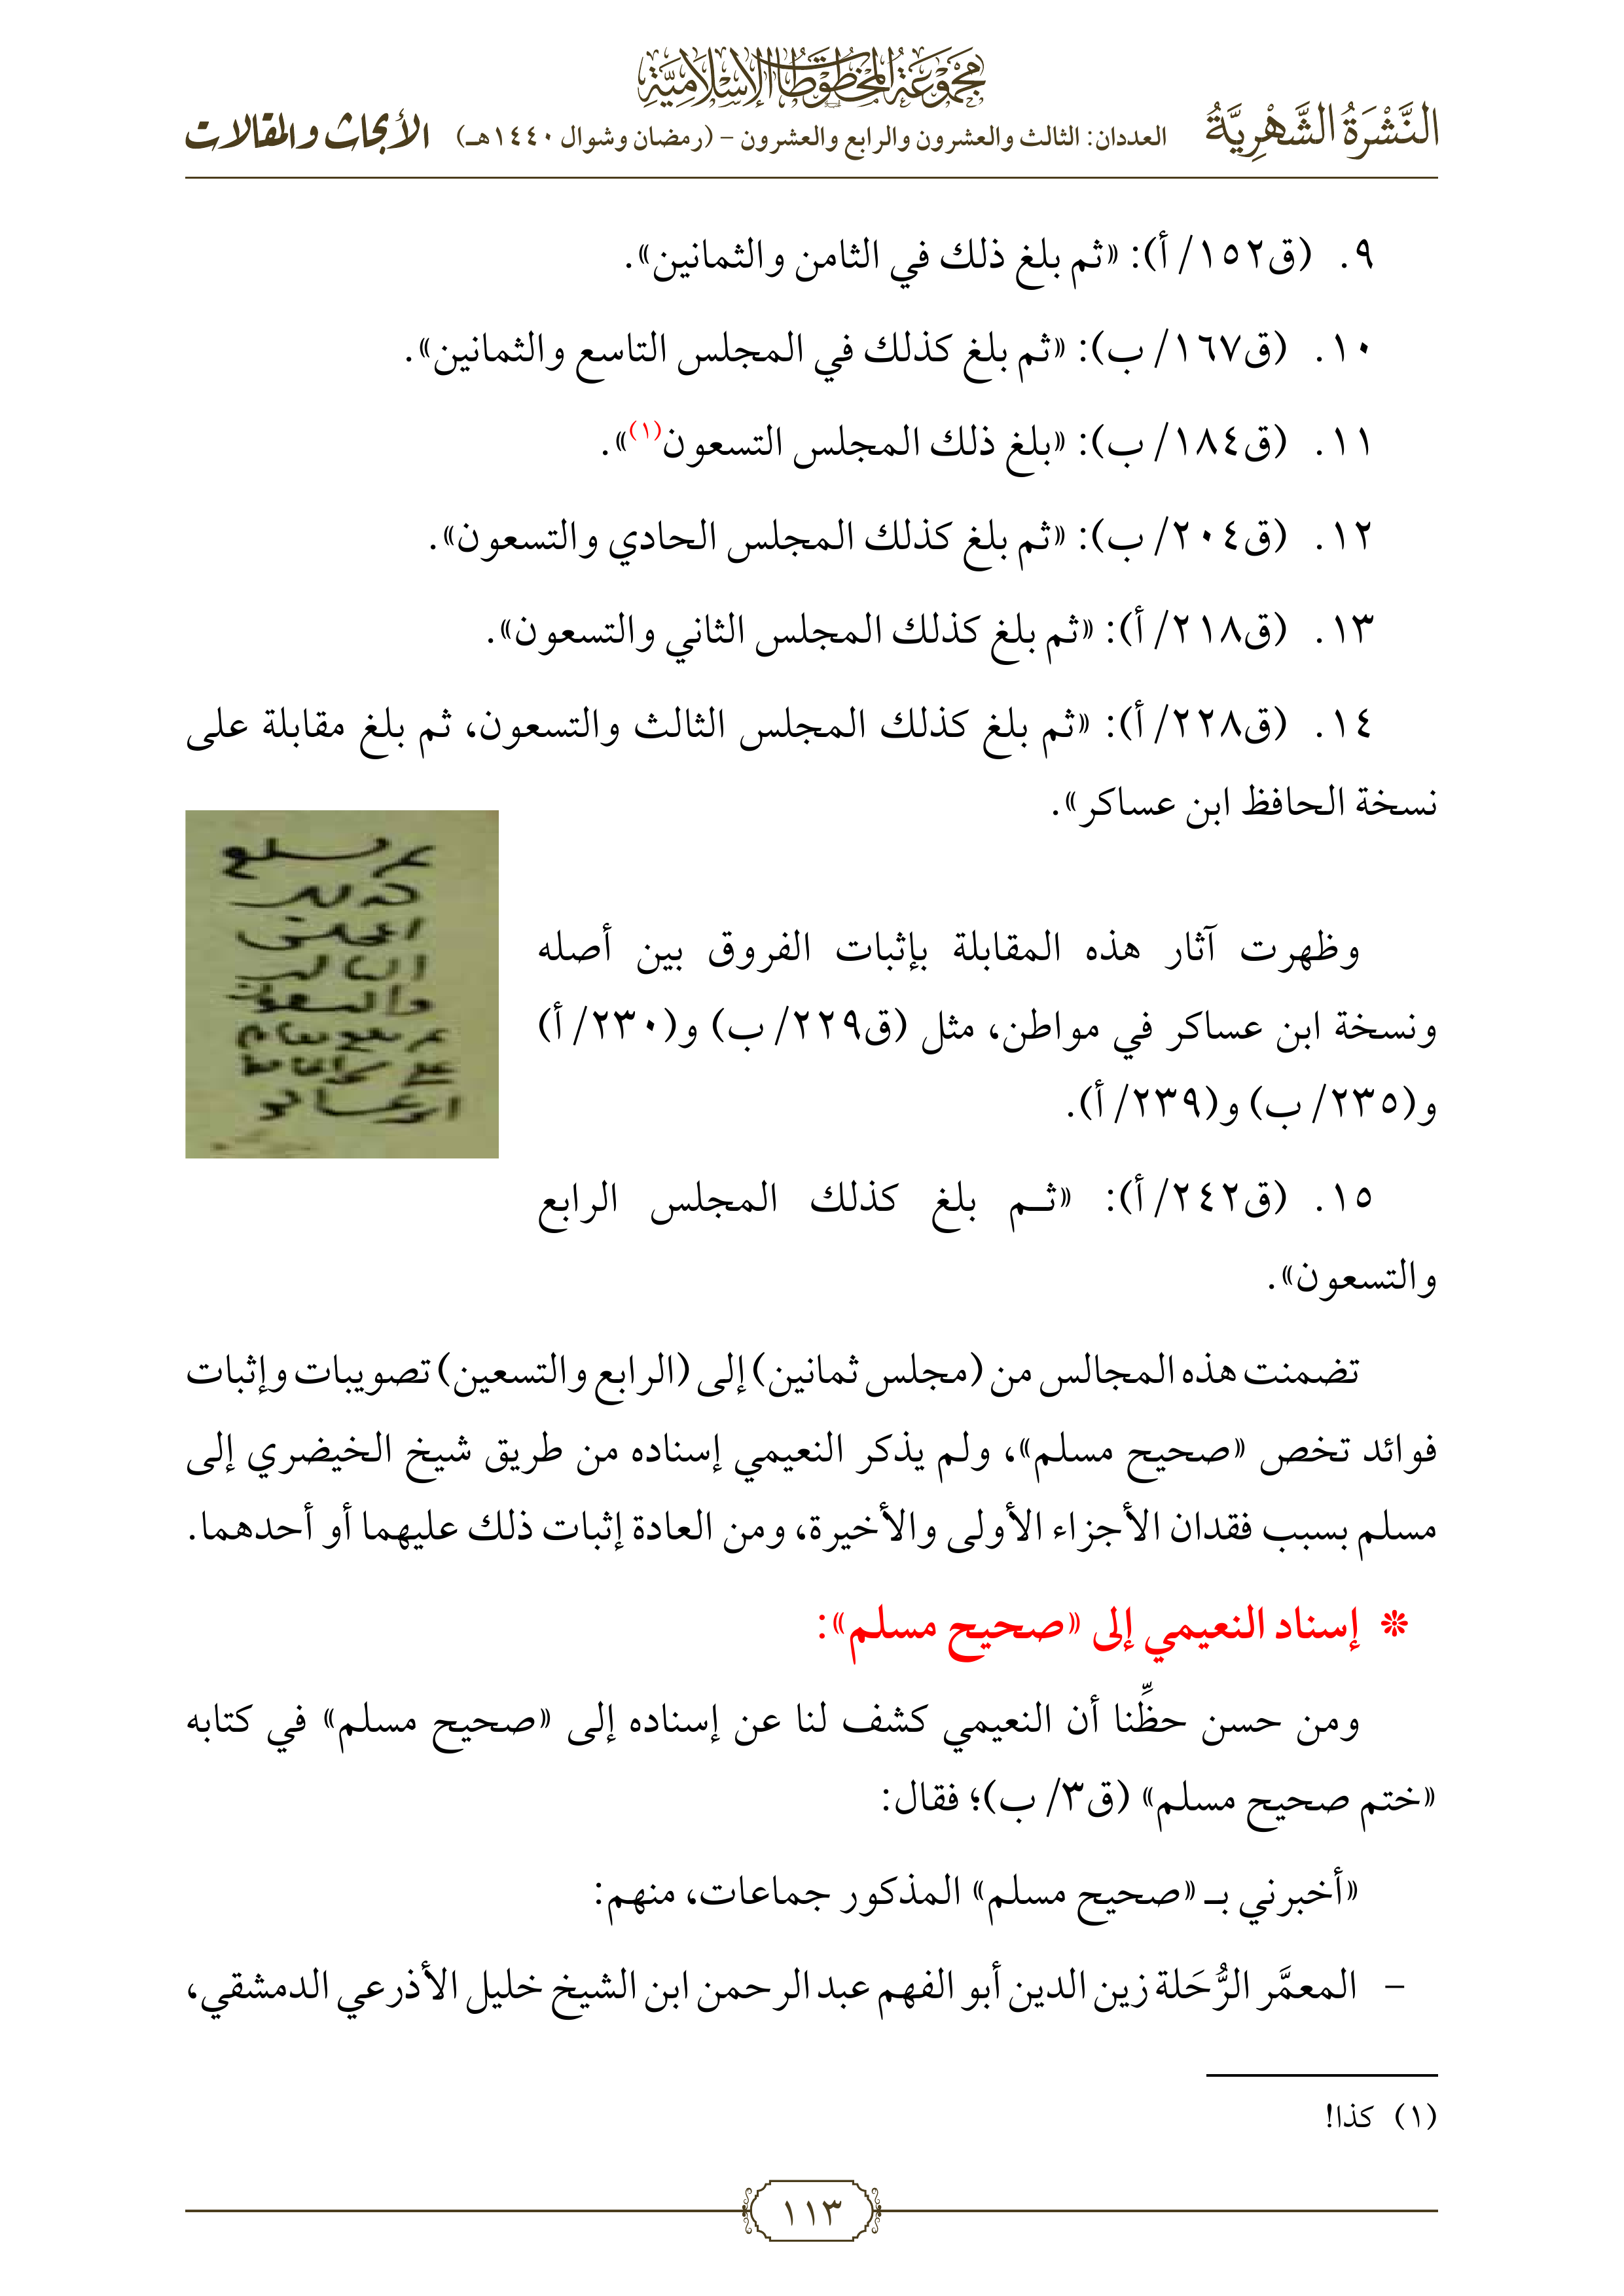 مَجْمُوعَةُ المَخْطُوطَاتِ الإِسْلَامِيَّةِ
النَّشْرَةُ الشَّهْرِيَّةُ العددان: الثالث والعشرون والرابع والعشرون – (رمضان وشوال ١٤٤٠هـ) الأبحاث والمقالات
٩. (ق١٥٢/ أ): «ثم بلغ ذلك في الثامن والثمانين».
١٠. (ق١٦٧/ ب): «ثم بلغ كذلك في المجلس التاسع والثمانين».
١١. (ق١٨٤/ ب): «بلغ ذلك المجلس التسعون(١)».
١٢. (ق٢٠٤/ ب): «ثم بلغ كذلك المجلس الحادي والتسعون».
١٣. (ق٢١٨/ أ): «ثم بلغ كذلك المجلس الثاني والتسعون».
١٤. (ق٢٢٨/ أ): «ثم بلغ كذلك المجلس الثالث والتسعون، ثم بلغ مقابلة على
نسخة الحافظ ابن عساكر».
ثم بلغ
كذلك
المجلس
الثالث
والتسعون
ثم بلغ مقابلة
على نسخة الحافظ
ابن عساكر
وظهرت آثار هذه المقابلة بإثبات الفروق بين أصله
ونسخة ابن عساكر في مواطن، مثل (ق٢٢٩/ ب) و(٢٣٠/ أ)
و(٢٣٥/ ب) و(٢٣٩/ أ).
١٥. (ق٢٤٢/ أ): «ثـم بلغ كذلك المجلس الرابع
والتسعون».
تضمنت هذه المجالس من (مجلس ثمانين) إلى (الرابع والتسعين) تصويبات وإثبات
فوائد تخص «صحيح مسلم»، ولم يذكر النعيمي إسناده من طريق شيخ الخيضري إلى
مسلم بسبب فقدان الأجزاء الأولى والأخيرة، ومن العادة إثبات ذلك عليهما أو أحدهما.
❊ إسناد النعيمي إلى «صحيح مسلم»:
ومن حسن حظِّنا أن النعيمي كشف لنا عن إسناده إلى «صحيح مسلم» في كتابه
«ختم صحيح مسلم» (ق٣/ ب)؛ فقال:
«أخبرني بـ «صحيح مسلم» المذكور جماعات، منهم:
– المعمَّر الرُّحَلة زين الدين أبو الفهم عبد الرحمن ابن الشيخ خليل الأذرعي الدمشقي،
(١) كذا!
١١٣